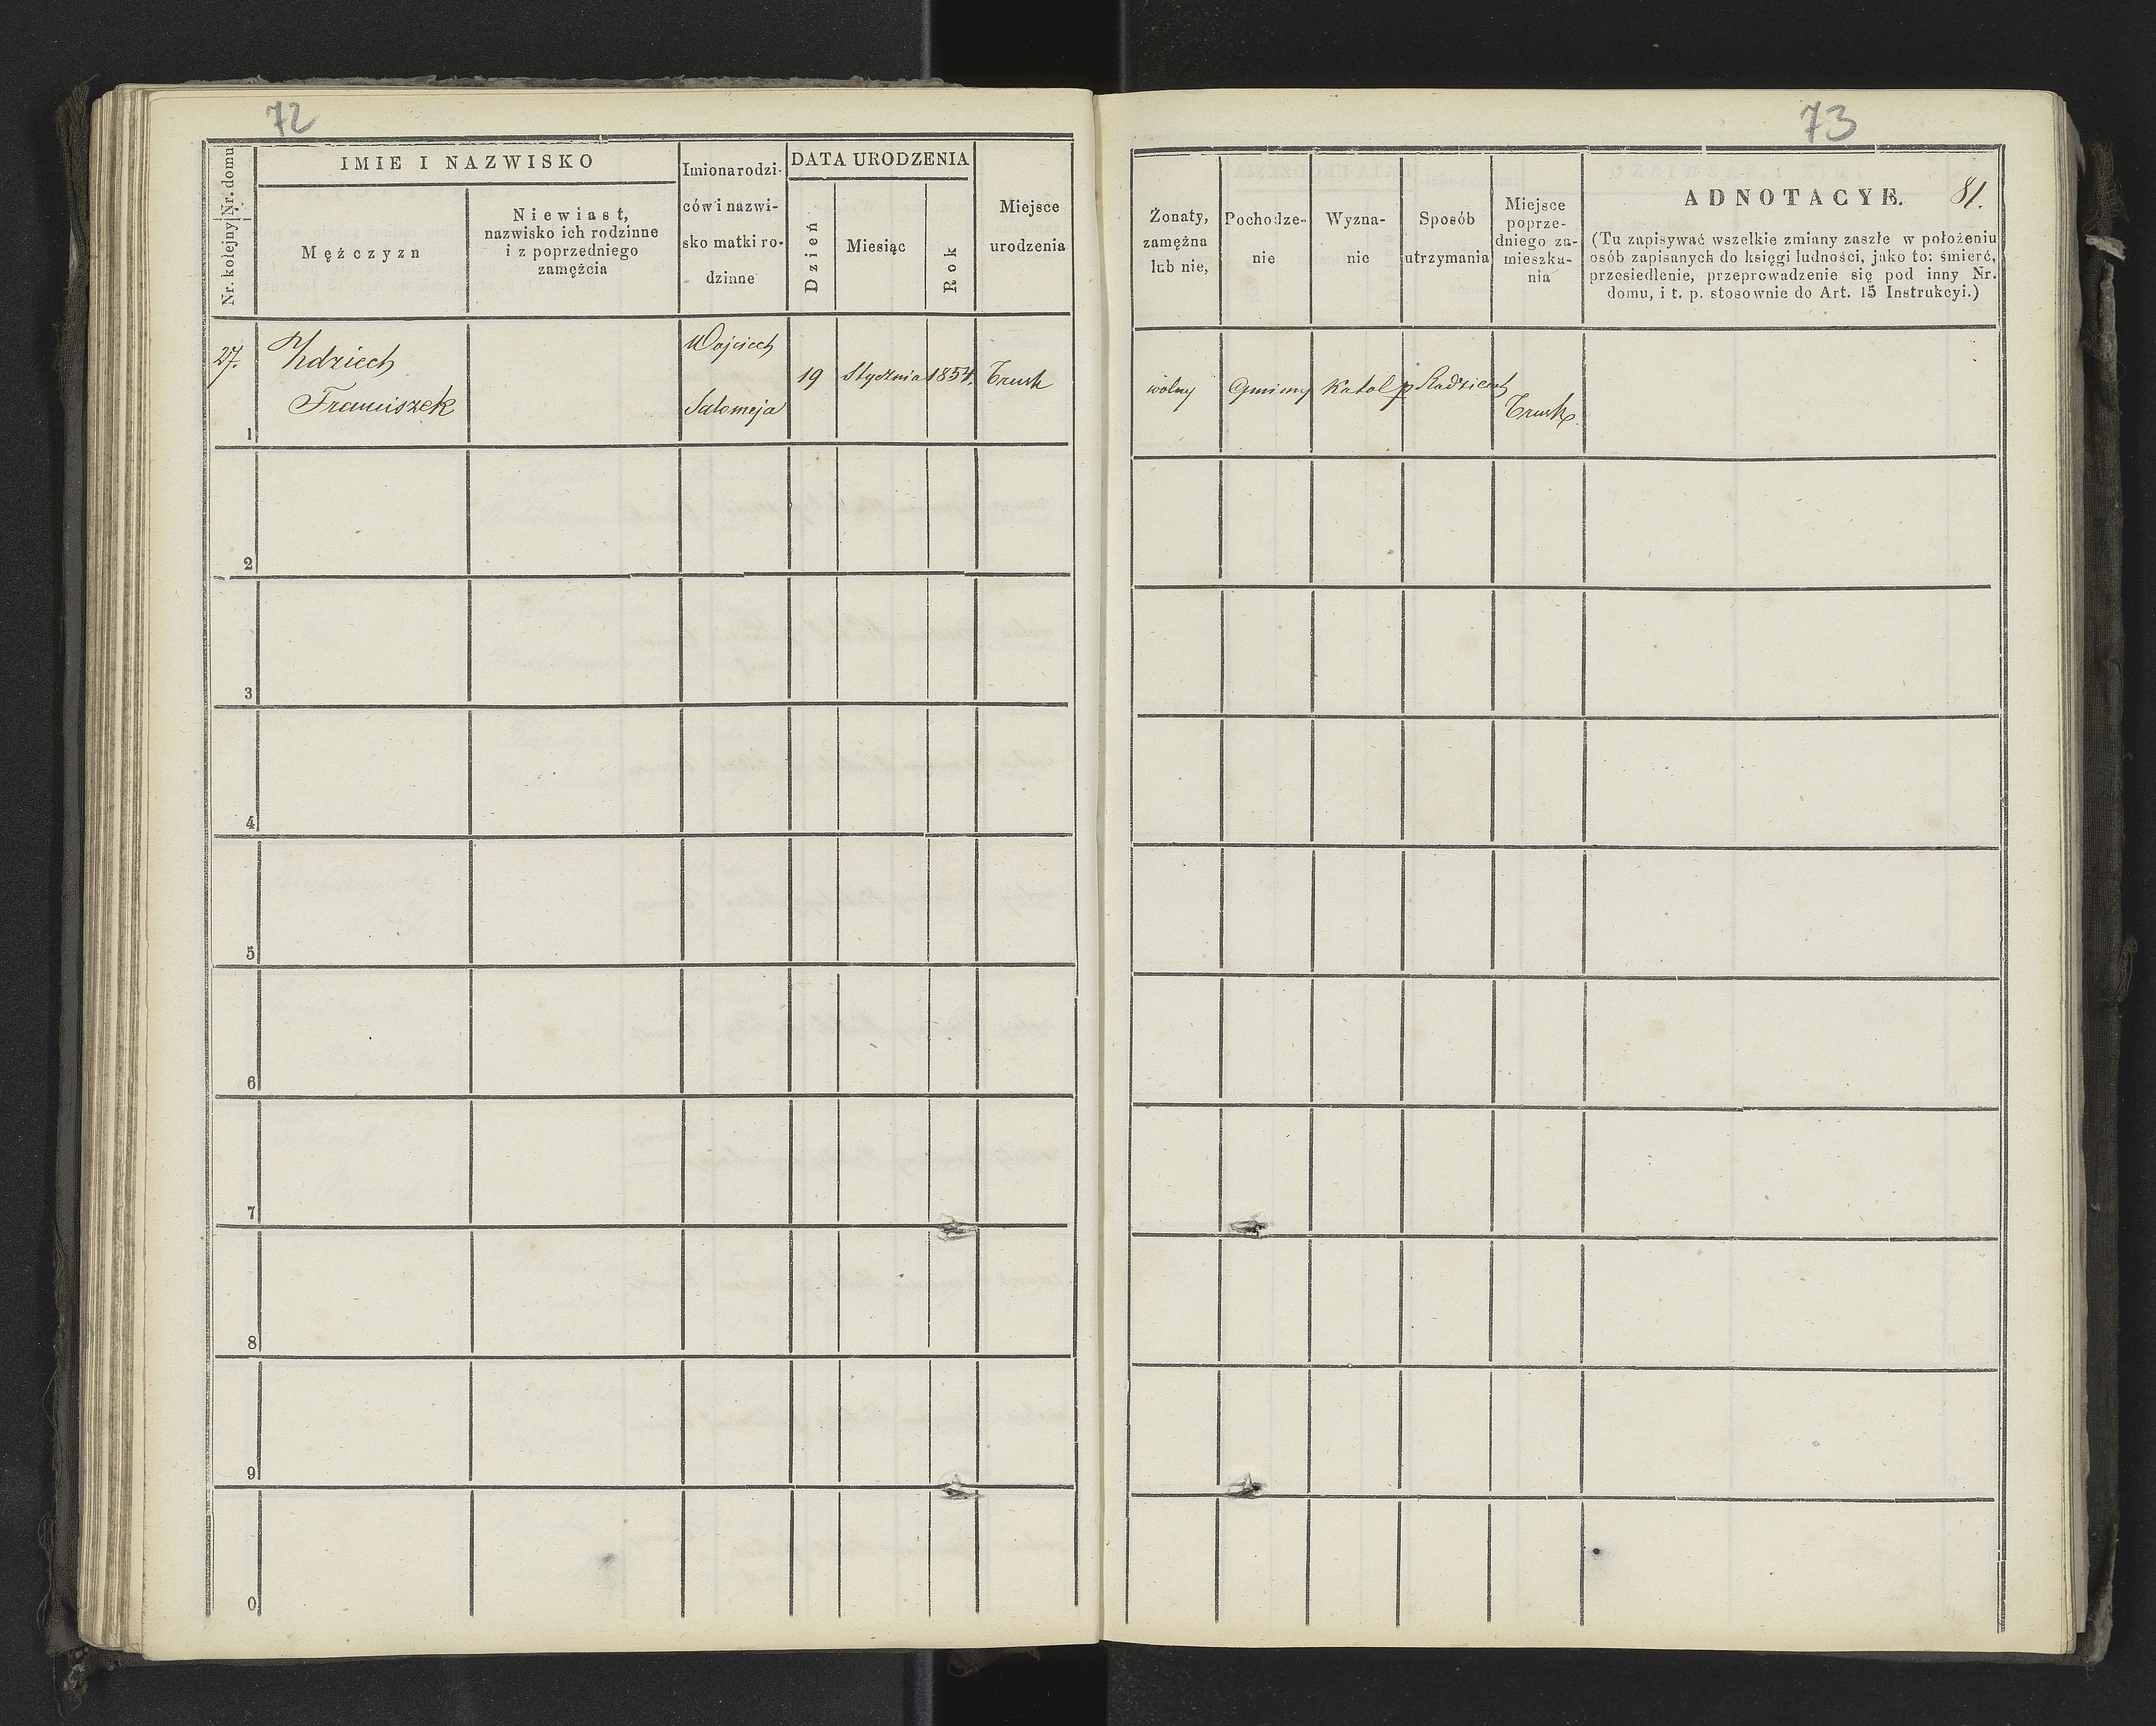 72
Nr. kolejny Nr. domu
IMIE I NAZWISKO
Mężczyzn
Niewiast,
nazwisko ich rodzinne
i z poprzedniego
zamężcia
Imiona rodzi-
ców i nazwi-
sko matki ro-
dzinne
DATA URODZENIA
Dzień
Miesiąc
Rok
Miejsce
urodzenia
27.
Franciszek
Wojciech
Salomeja
19
Stycznia
1854.
Trusk
1
2
3
4
5
6
7
8
9
0
73
Żonaty,
zamężna
lub nie,
Pochodze-
nie
Wyzna-
nie
Sposób
utrzymania
Miejsce
poprze-
dniego za-
mieszka-
nia
ADNOTACYE.
81.
(Tu zapisywać wszelkie zmiany zaszłe w położeniu
osób zapisanych do księgi ludności, jako to: śmierć,
przesiedlenie, przeprowadzenie się pod inny Nr.
domu, i t. p. stosownie do Art. 15 Instrukcyi.)
wolny
Gminny
Katol
p Radzicach
Trusk